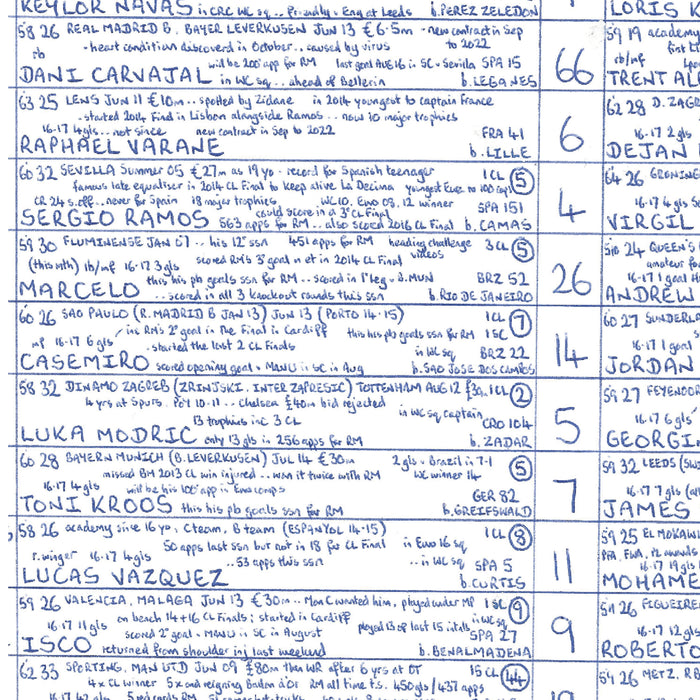 KEYLOR NAVAS in CRC WC sq... Friendly v. Eng at Leeds b.PEREZ ZELEDON
58 26 REAL MADRID B, BAYER LEVERKUSEN JUN 13 €6.5m - new contract in Sep to 2022
rb - heart condition discovered in October.. caused by virus
will be 200th app for RM last goal AUG 16 in SC v Sevilla SPA 15
DANI CARVAJAL in WC sq... ahead of Bellerin b.LEGANES
66
63 25 LENS JUN 11 €10m.. spotted by Zidane in 2014 youngest to captain France
- started 2014 Final in Lisbon alongside Ramos.. now 10 major trophies
16-17 4gls.. not since new contract in Sep to 2022 FRA 41
RAPHAEL VARANE b.LILLE
6
60 32 SEVILLA Summer 05 €27m as 19 yo - record for Spanish teenager 1CL 5
famous late equaliser in 2014 CL Final to keep alive La Decima youngest Euro to 100 caps
CR 24 s.off.. never for Spain 18 major trophies WC10, Euro 08, 12 winner SPA 151
could score in a 3rd CL Final
SERGIO RAMOS 563 apps for RM.. also scored 2016 CL Final b.CAMAS
4
59 30 FLUMINENSE JAN 07.. his 12th ssn 451 apps for RM heading challenge videos 3CL 5
scored RM's 3rd goal in et in 2014 CL Final
(this mth) lb/mf 16-17 3gls
this his pb goals ssn for RM.. scored in 1st leg v B.MUN BRZ 52
MARCELO ..scored in all 3 knockout rounds this ssn b.RIO DE JANEIRO
26
60 26 SAO PAULO (R.MADRID B JAN 13) JUN 13 (PORTO 14-15) 1CL 7
inc RM's 2nd goal in the Final in Cardiff this his pb goals ssn for RM 1SC
mf 16-17 6gls - started the last 2 CL Finals in WC sq BRZ 22
CASEMIRO scored opening goal v MANU in SC in Aug b.SAO JOSE DOS CAMPOS
14
58 32 DINAMO ZAGREB (ZRINJSKI, INTER ZAPRESIC) TOTTENHAM AUG 12 £30m 1CL 2
4 yrs at Spurs.. POY 10-11.. Chelsea £40m bid rejected in WC sq captain
13 trophies inc 3 CL CRO 104
LUKA MODRIC only 13 gls in 256 apps for RM b.ZADAR
5
60 28 BAYERN MUNICH (B.LEVERKUSEN) JUL 14 €30m 2gls v Brazil in 7-1 5
missed BM 2013 CL win injured.. won it twice with RM WC winner 14
16-17 4gls will be his 100th app in Euro comps GER 82
TONI KROOS this his pb goals ssn for RM b.GREIFSWALD
7
58 26 academy since 16 yo, C team, B team (ESPANYOL 14-15) 1CL 8
50 apps last ssn but not in 18 for CL Final in Euro 16 sq
r.winger 16-17 4gls ..53 apps this ssn ..in WC sq SPA 5
LUCAS VAZQUEZ b.CURTIS
11
59 26 VALENCIA, MALAGA JUN 13 €30m.. Man C wanted him, played under MP 1SC 9
on bench 14+16 CL Finals; started in Cardiff in WC sq
16-17 11gls played 13 of last 15 intals
scored 2nd goal v MANU in SC in August SPA 27
ISCO returned from shoulder inj last weekend b.BENALMADENA
9
62 33 SPORTING, MAN UTD JUN 09 £80m then WR after 6 yrs at OT 15CL 44
4x CL winner 5x and reigning Ballon d'Or RM all time t.s. 450gls/437 apps
LORIS K
59 19 academy
rb/mf
TRENT AL
62 28 D.ZAG
16-17 2gls
DEJAN
64 26 GRONING
16-17 4gls
VIRGIL
24 QUEEN'S
amateur
16-17 1 goal
ANDREW
60 27 SUNDERLA
16-17 1 goal
JORDAN
59 27 FEYENOOR
16-17 6gls
GEORGI
59 32 LEEDS
16-17 7gls
JAMES
59 25 EL MOKAWL
PFA, FWA
16-17 19gls
MOHAME
26 FIGUEIRE
16-17 12gls
ROBERTO
59 26 METZ